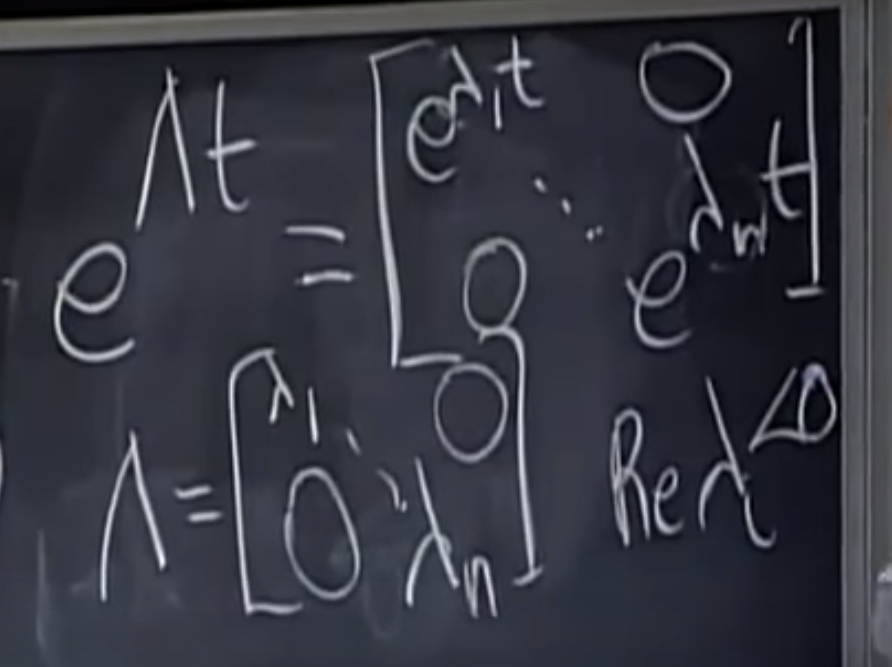 e^{Λt} = [e^{λ₁t} 0 ⋱ 0 e^{λₙt}]
Λ = [λ₁ 0 ⋱ 0 λₙ] Re λ < 0